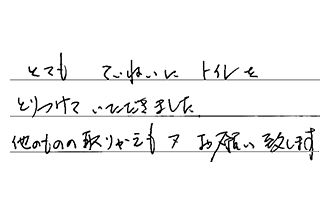 とても ていねいに トイレを
とりつけて いただきました
他のものの取りかえも お願い致します